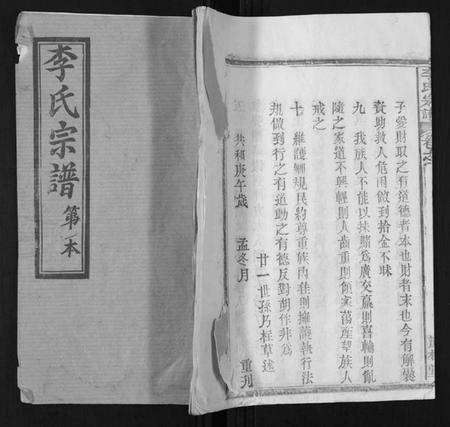 李氏宗譜
第一本
李氏宗譜
子愛財取之有道德者本也財者末也今有解裂
賚助救人危困做到拾金不昧
九 我族人不能以抹賭為廣交贏則喜輸則亂
隨之家道不興輕則人齒重則傾家蕩産望族人
戒之
十 維護鄉規民約尊重族內往則擁護執行法
規做到行之有道動之有德反對胡作非為
廿一世孫乃枉草述
共和庚午歲 孟冬月 重刋